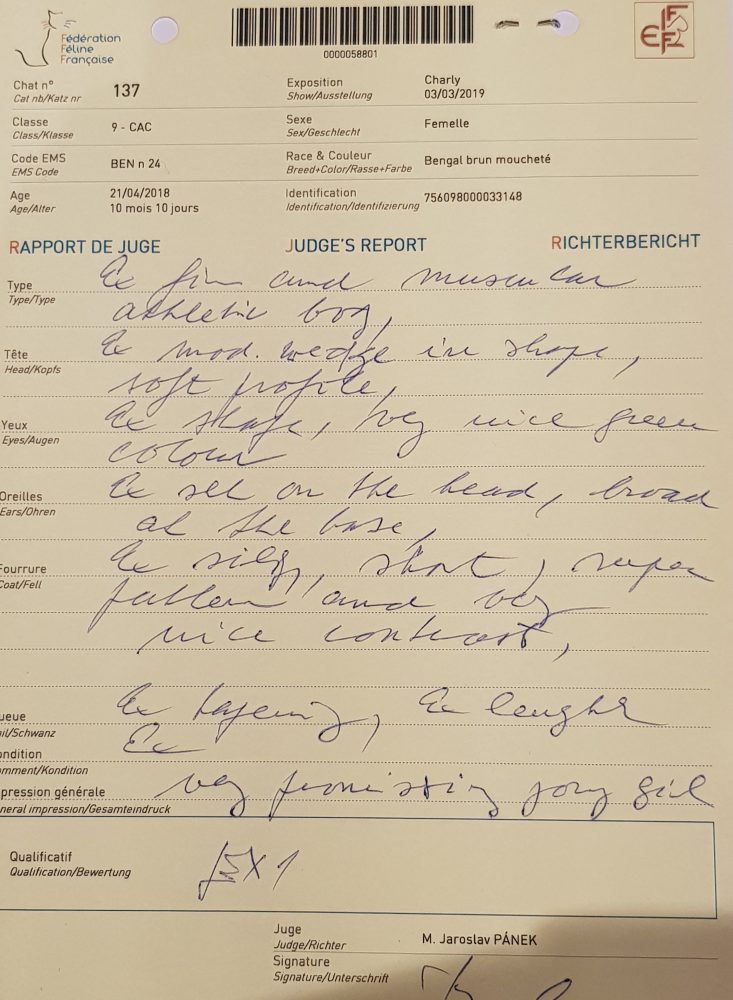 Fédération
Féline
Française
0000058801
FIFe
Chat n° 137 Exposition Charly
Cat nb/Katz nr Show/Ausstellung 03/03/2019
Classe 9 - CAC Sexe Femelle
Class/Klasse Sex/Geschlecht
Code EMS BEN n 24 Race & Couleur Bengal brun moucheté
EMS Code Breed+Color/Rasse+Farbe
Age 21/04/2018 Identification 756098000033148
Age/Alter 10 mois 10 jours Identification/Identifizierung
RAPPORT DE JUGE JUDGE'S REPORT RICHTERBERICHT
Type Ex firm and muscular
Type/Type athletic body,
Tête Ex mod. wedge in shape,
Head/Kopfs soft profile,
Yeux Ex shape, very nice green
Eyes/Augen colour
Oreilles Ex set on the head, broad
Ears/Ohren at the base,
Fourrure Ex silky, short, super
Coat/Fell pattern and very
nice contrast,
ueue Ex tapering, Ex lenght
il/Schwanz
ondition Ex
mment/Kondition
pression générale very promissing yong girl
neral impression/Gesamteindruck
Qualificatif EX 1
Qualification/Bewertung
Juge M. Jaroslav PÁNEK
Judge/Richter
Signature
Signature/Unterschrift